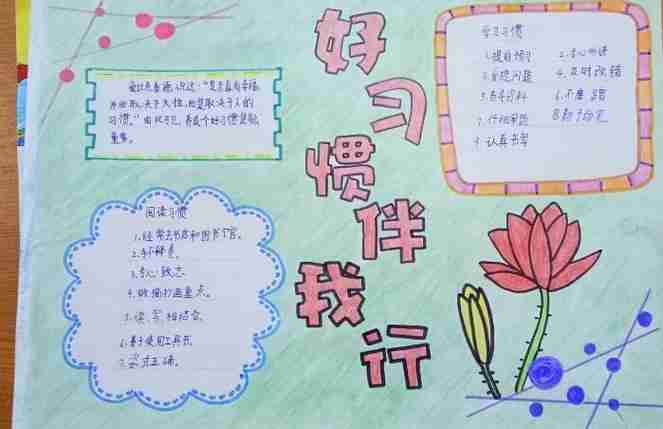 好习惯伴我行
爱比克泰德说过:“是否真有幸福
并非取决于天性,而是取决于人的
习惯。”由此可见,养成个好习惯是
重要。
学习习惯
1.提前预习 2.专心听讲
3.发现问题 4.及时改错
5.查寻资料 6.不磨蹭
7.仔细审题 8.勤于
9.认真书写
阅读习惯
1.经常去书店和图书馆。
2.手不释卷。
3.专心致志。
4.做摘抄画重点。
5.读、写相结合。
6.善于使用工具书。
7.姿式正确。